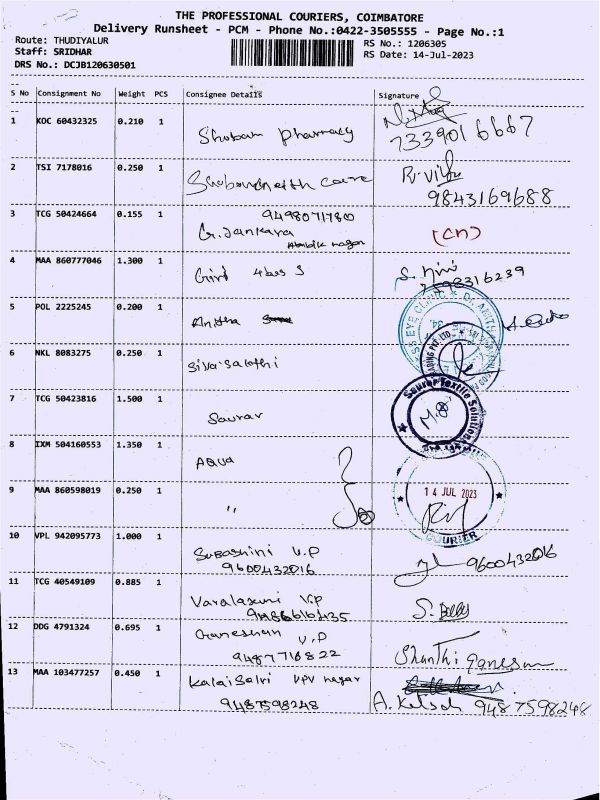 THE PROFESSIONAL COURIERS, COIMBATORE
Delivery Runsheet - PCM - Phone No.:0422-3505555 - Page No.:1
Route: THUDIYALUR
RS No.: 1206305
Staff: SRIDHAR
RS Date: 14-Jul-2023
DRS No.: DCJB120630501
S No Consignment No Weight PCS Consignee Details Signature
1 KOC 60432325 0.210 1 Shubam pharmacy
7339016667
2 TSI 7178016 0.250 1
9843169688
3 TCG 50424664 0.155 1 9498071780
G. Jankara nagar
4 MAA 860777046 1.300 1
5 POL 2225245 0.200 1
6 NKL 8083275 0.250 1 Sivasakthi
7 TCG 50423816 1.500 1 Saurav
Saurav Textile Solution
8 IXM 504160553 1.350 1 AQUA
9 MAA 860598019 0.250 1 "
14 JUL 2023
COURIER
10 VPL 942095773 1.000 1 Subashini V.P
9600432016 9600432016
11 TCG 40549109 0.885 1 Varalaxmi V.P
12 DDG 4791324 0.695 1 Ganeshan V.P
9487716822 Shanthi Ganesan
13 MAA 103477257 0.450 1 Kalaiselvi VPV nagar
9487598248 9487598248